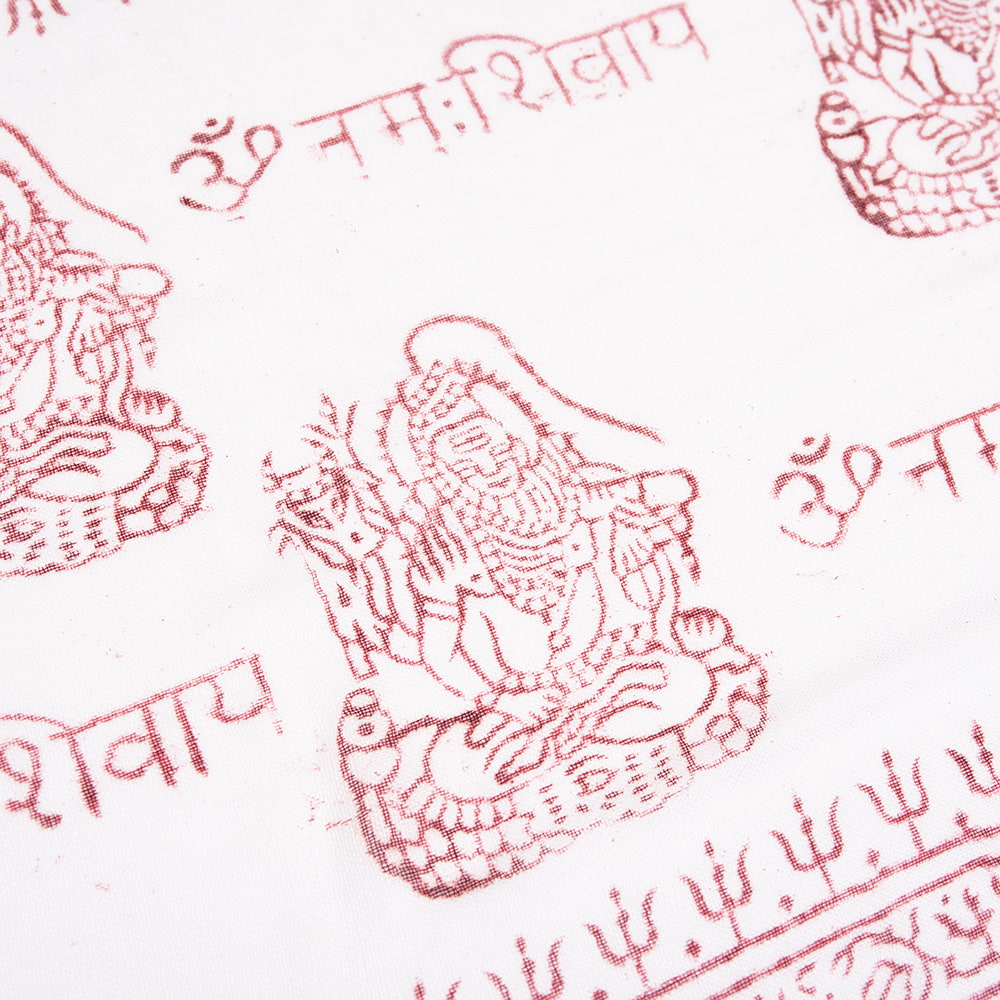 ॐ नमः शिवाय
ॐ न
शिवाय